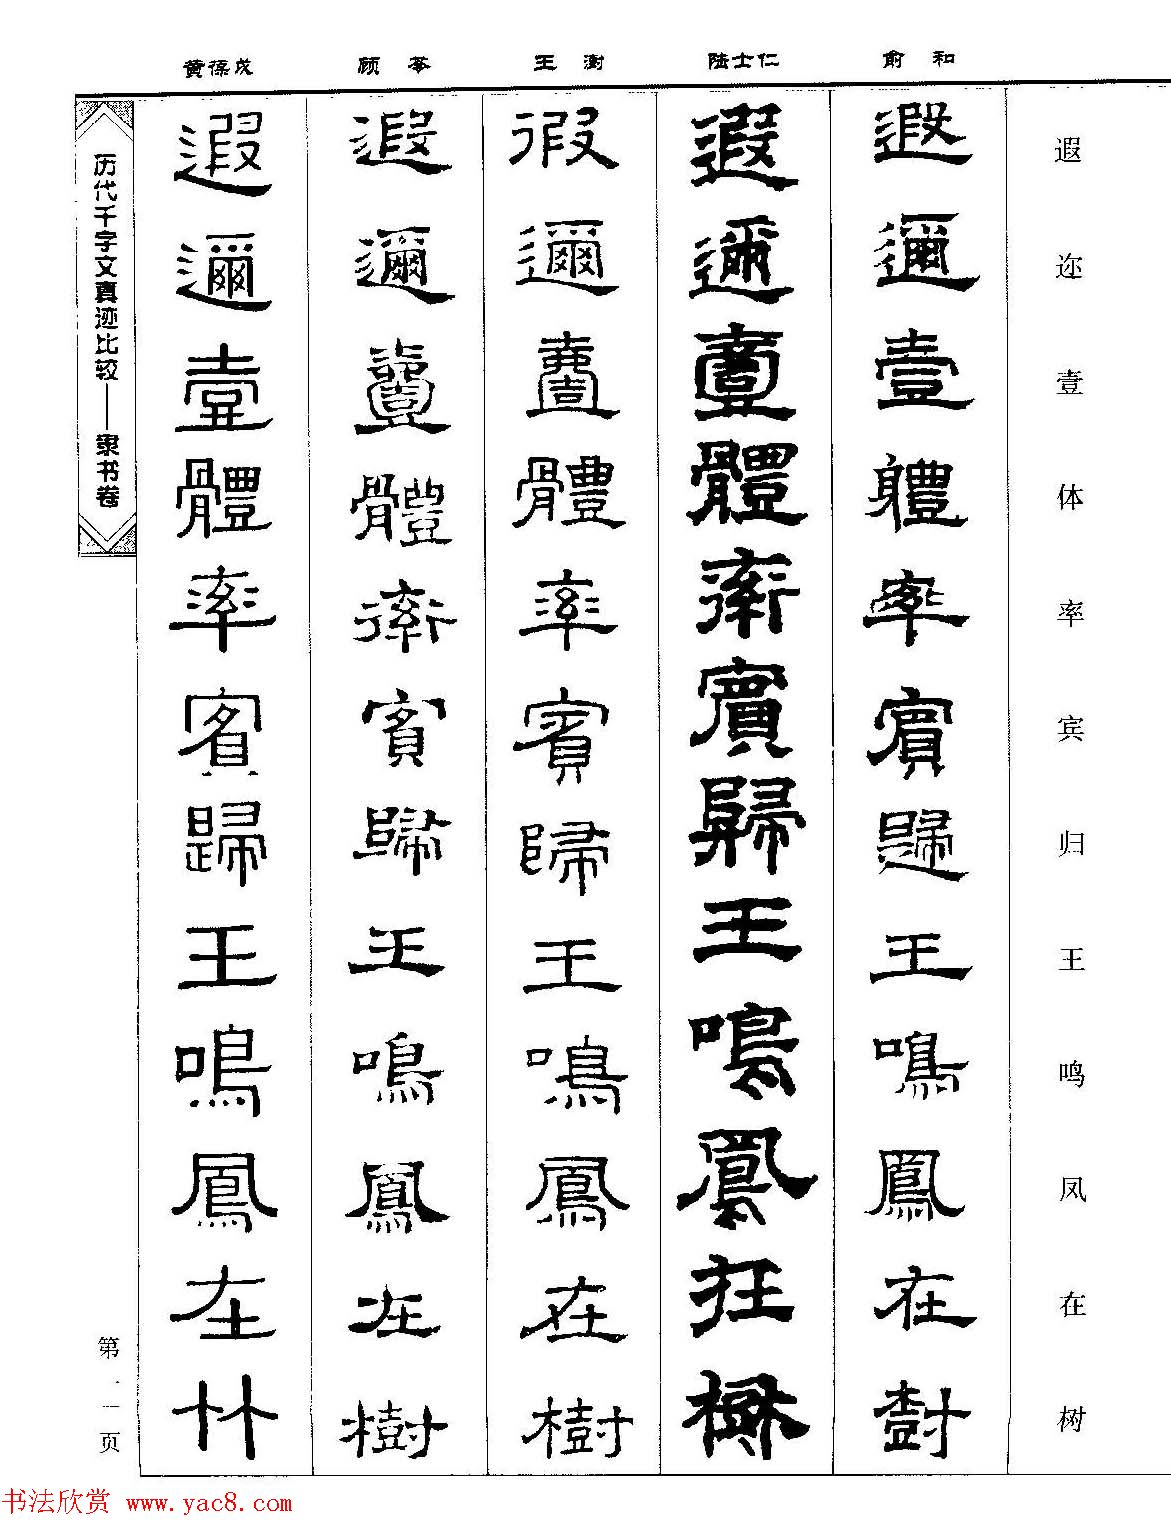 遐迩壹体率宾归王鸣凤在树
俞和
遐邇壹軆率賓歸王鳴鳳在樹
陆士仁
遐邇壹體衛賓歸王鳴鳳在樹
王澍
徦邇壹體率賓歸王鳴鳳在樹
顾苓
遐邇壹體衛賓歸王鳴鳳在樹
黄葆戉
遐邇壹體率賓歸王鳴鳳在竹
历代千字文真迹比较——隶书卷
第一一页
书法欣赏 www.yac8.com